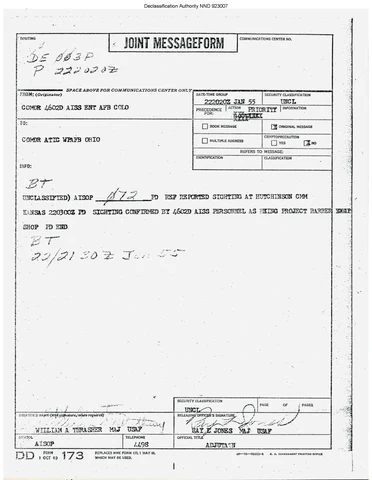 Declassification Authority NND 923007
ROUTING
JOINT MESSAGEFORM
COMMUNICATIONS CENTER NO.
DE 003P
P 222020Z
SPACE ABOVE FOR COMMUNICATIONS CENTER ONLY
FROM: (Originator)
DATE-TIME GROUP
SECURITY CLASSIFICATION
COMDR 4602D AISS ENT AFB COLO
222020Z JAN 55
UNCL
PRECEDENCE FOR:
ACTION
PRIORITY
INFORMATION
TO:
BOOK MESSAGE
ORIGINAL MESSAGE
COMDR ATIC WPAFB OHIO
CRYPTOPRECAUTION
MULTIPLE ADDRESS
YES
NO
REFERS TO MESSAGE:
IDENTIFICATION
CLASSIFICATION
INFO:
BT
UNCLASSIFIED) AISOP 072 PD REF REPORTED SIGHTING AT HUTCHINSON CMM
KANSAS 220300Z PD SIGHTING CONFIRMED BY 4602D AISS PERSONNEL AS BEING PROJECT
SHOP PD END
BT
22/2130Z Jan 55
SECURITY CLASSIFICATION
PAGE
OF
PAGES
UNCL
RELEASING OFFICER'S SIGNATURE
WILLIAM A THRASHER MAJ USAF
JONES MAJ USAF
SYMBOL
TELEPHONE
OFFICIAL TITLE
AISOP
4498
ADJUTAIN
DD FORM 1 OCT 49 173
REPLACES NME FORM 173, 1 MAY 48,
WHICH MAY BE USED.
U. S. GOVERNMENT PRINTING OFFICE